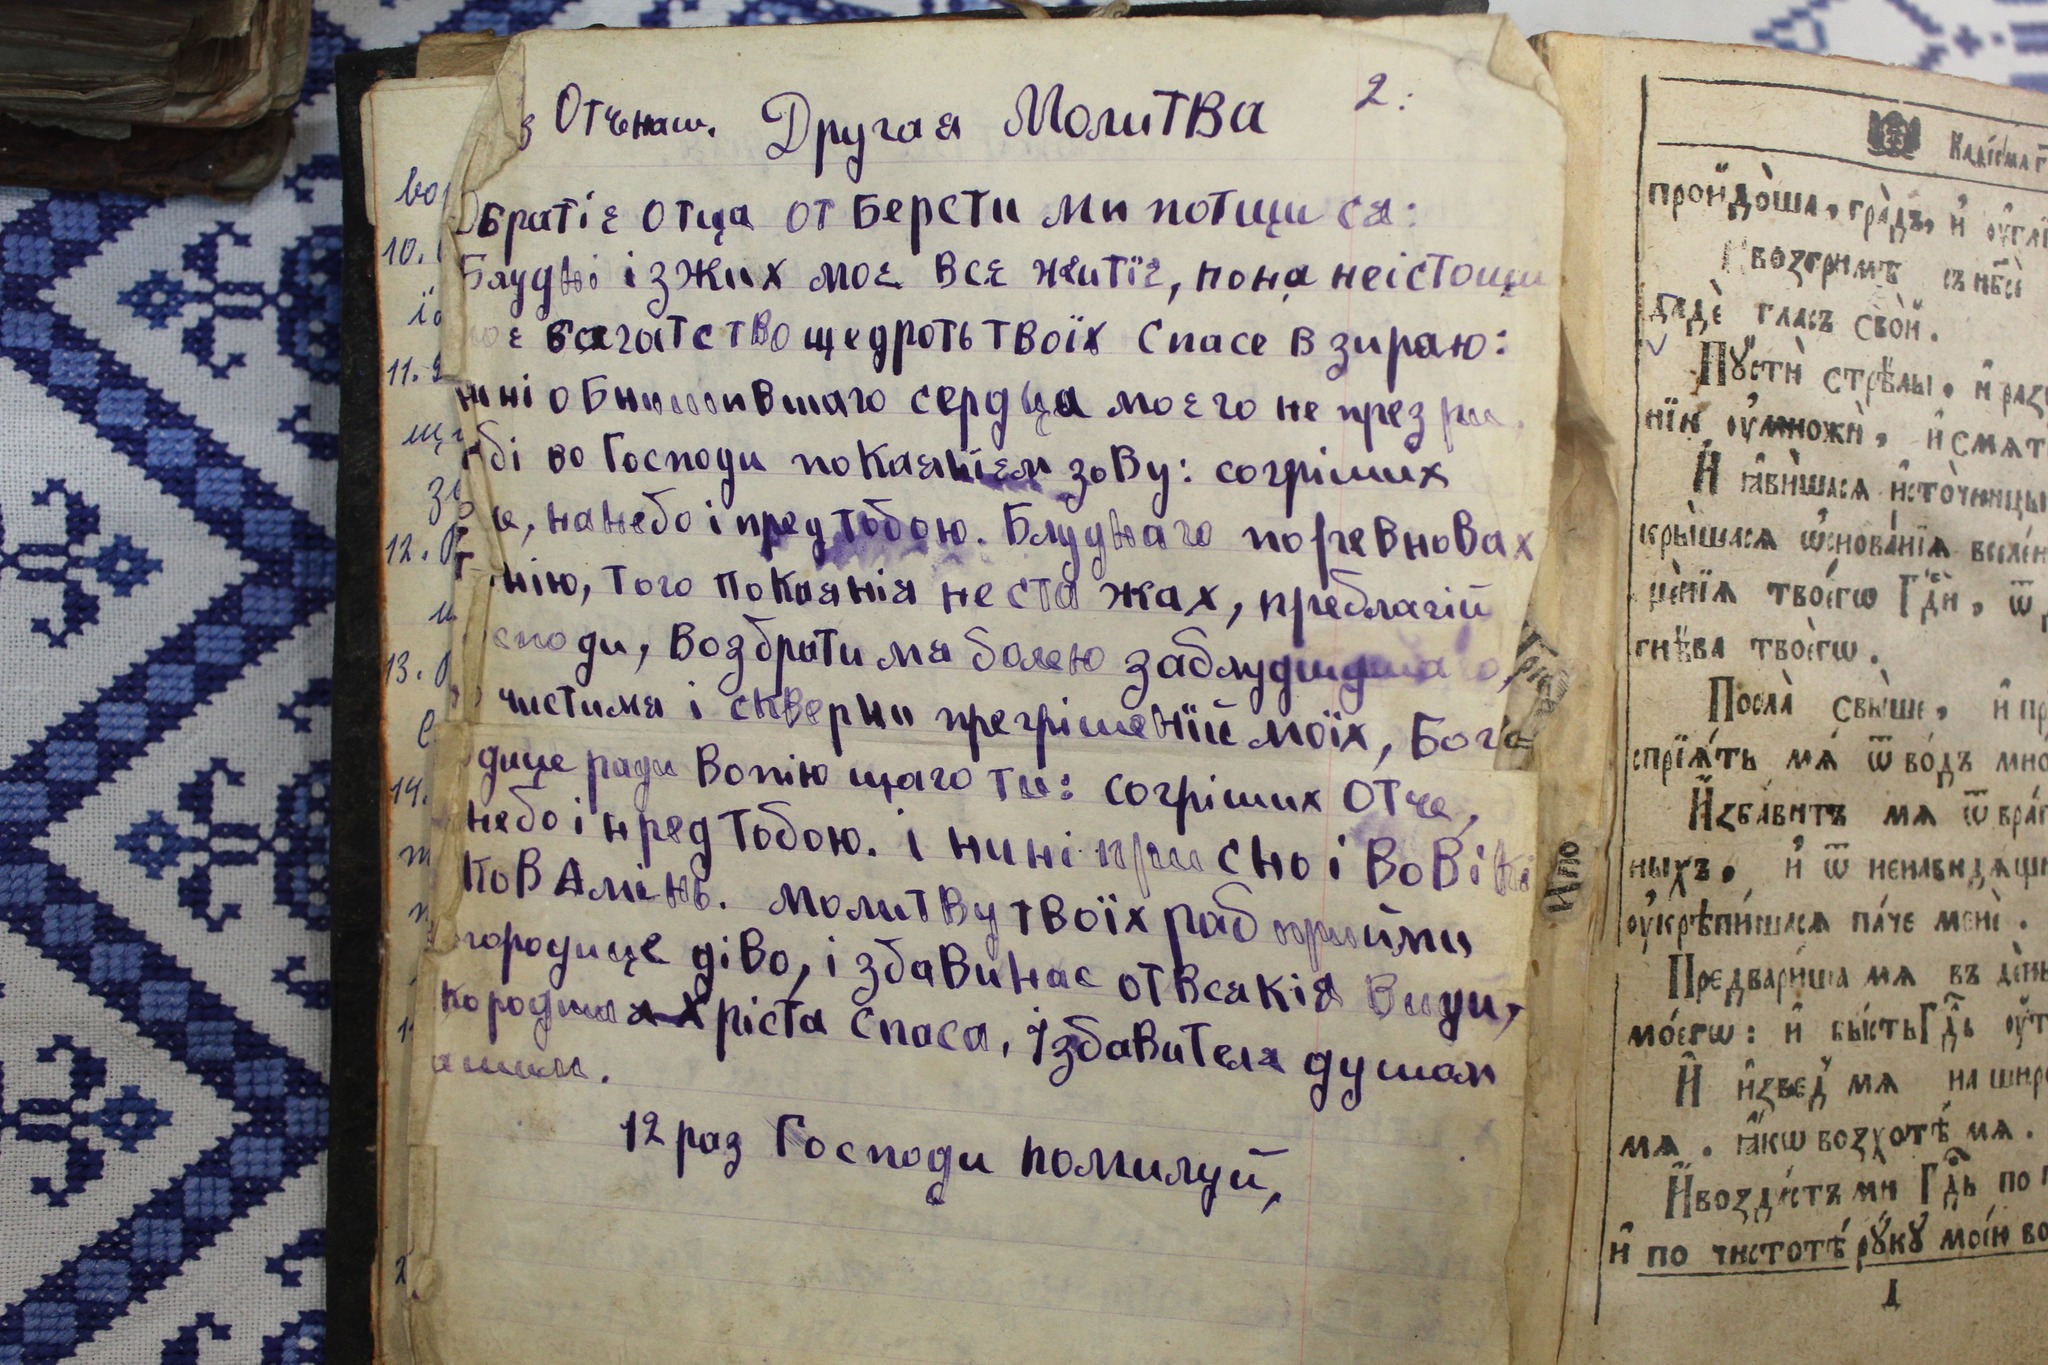 з Отченаш. Другая Молитва 2:
Обратіе отца отверсти ми потщися:
Блудні ізжих моє все житїє, пона неістощи
моє багатство щедроть твоїх Спасе взираю:
нині обнищавшаго сердца моєго не презри.
бі во Господи покаянієм зову: согріших
че, на небо і пред тобою. Блуднаго поревновах
нію, того покаянія не стажах, преблагій
споди, возбрати мя болею заблудшдшаго,
чистимя і скверни прегрішенїй моїх, Бого=
дице ради вопіющаго ти: согріших отче,
небо і пред тобою. і нині присно і вовіки
ков Амінь. молитву твоїх раб прийми
огородице діво, і збави нас от всякія
Хріста спаса, Ізбавителя душам
ашим.
12 раз Господи помилуй,
10.
11.
12.
13.
14.
Каѳісма
пройдо́ша, гра́дъ, и҆ оу҆глї
съ нб҃сѐ
дадѐ гласъ сво́й.
Пꙋстѝ стрѣ́лы. и҆ раз
нїи оу҆мно́жѝ, и҆ смѧт
И҆ ꙗ҆ви́шасѧ и҆сто́чницы
крышасѧ ѡ҆снова́нїѧ вселе́н
ще́нїѧ твоегѡ̀ Гдⷭ҇и, ѿ д
гнѣ́ва твоегѡ̀.
Посла̀ свы́ше, и҆ пр
спрїѧ́тъ мѧ́ ѿ во́дъ мно
И҆зба́витъ мѧ ѿ враг
ныхъ. и҆ ѿ ненавидѧщи
оу҆крѣпи́шасѧ па́че менѐ.
Предвари́ша мѧ въ де́нь
моегѡ̀: и҆ бы́сть Гдⷭ҇ь оу҆т
И҆ и҆зведѐ мѧ на широ
мѧ. ꙗ҆́кѡ восхотѣ́ мѧ.
И҆ возда́стъ ми Гдⷭ҇ь по п
и҆ по чистотѣ́ рꙋкꙋ̀ мое́ю во